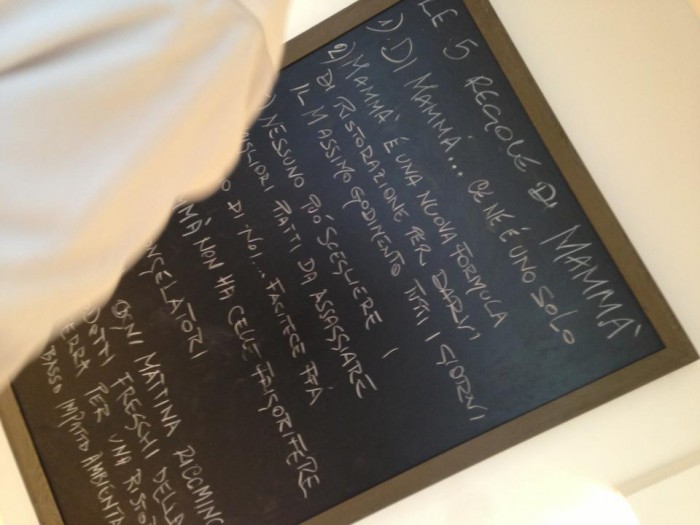 LE 5 REGOLE DI MAMMÀ
1) DI MAMMÀ... CE NE È UNO SOLO
2) MAMMÀ È UNA NUOVA FORMULA
DI RISTORAZIONE PER DARVI
IL MASSIMO GODIMENTO TUTTI I GIORNI
) NESSUNO PUÒ SCEGLIERE I
MIGLIORI PIATTI DA ASSAGGIARE
DI NOI... FACITECE FÀ
NON HA CELLE FRIGORIFERE
CONGELATORI
OGNI MATTINA RICOMINC
FRESCHI DELLA
PER UNA RISTO
BASSO IMPATTO AMBIENTA